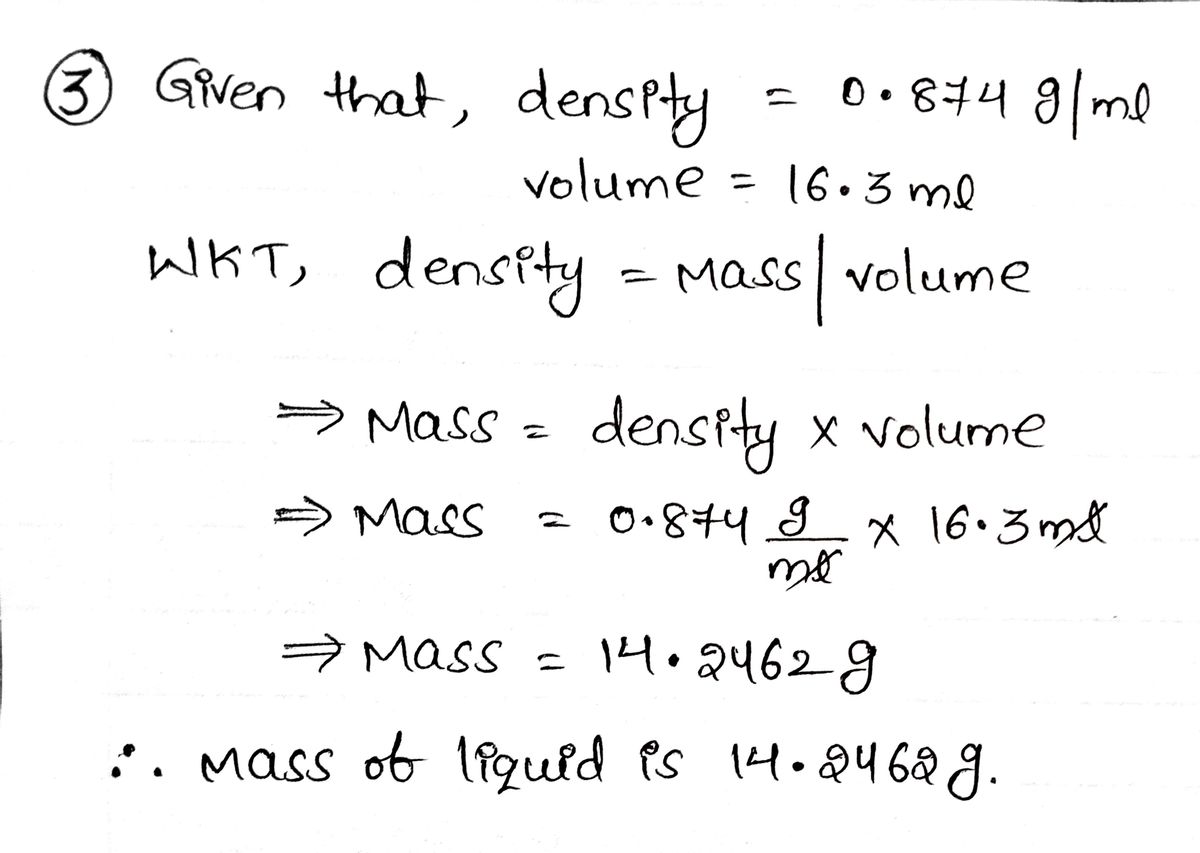 ③ Given that, density = 0.874 g/ml
volume = 16.3 ml
WKT, density = Mass/volume
⇒ Mass = density x volume
⇒ Mass = 0.874 g/ml x 16.3 ml
⇒ Mass = 14.2462 g
∴ Mass of liquid is 14.2462 g.